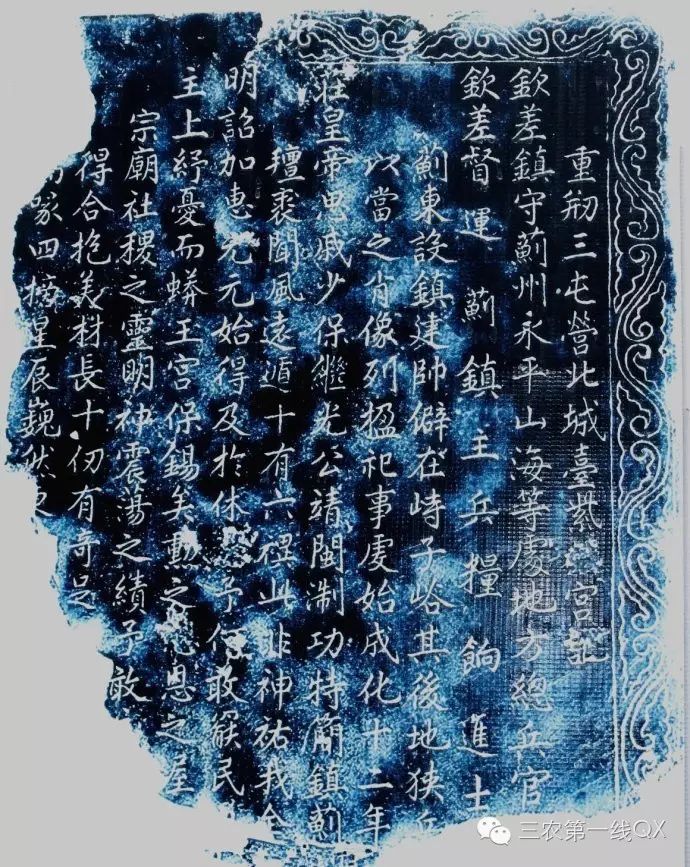 重剏三屯營北城臺紫宮記
欽差鎮守薊州永平山海等處地方總兵官
欽差督運薊鎮主兵糧餉進士
薊東設鎮建帥僻在峙子峪其後地狹
以當之肖像列楹祀事虔始成化十二年
莊皇帝思戚少保繼光公靖閩淛功特簡鎮薊
氊裘聞風遠遁十有六禩此非神祐我
明詔加惠元元始得及於休予何敢罷民
主上紓憂而蟒王宮保錫矣勳之恩之
宗廟社稷之靈明神震蕩之績予敢
得合抱美材長十仞有奇足
四楹星辰巍然
三农第一线QX